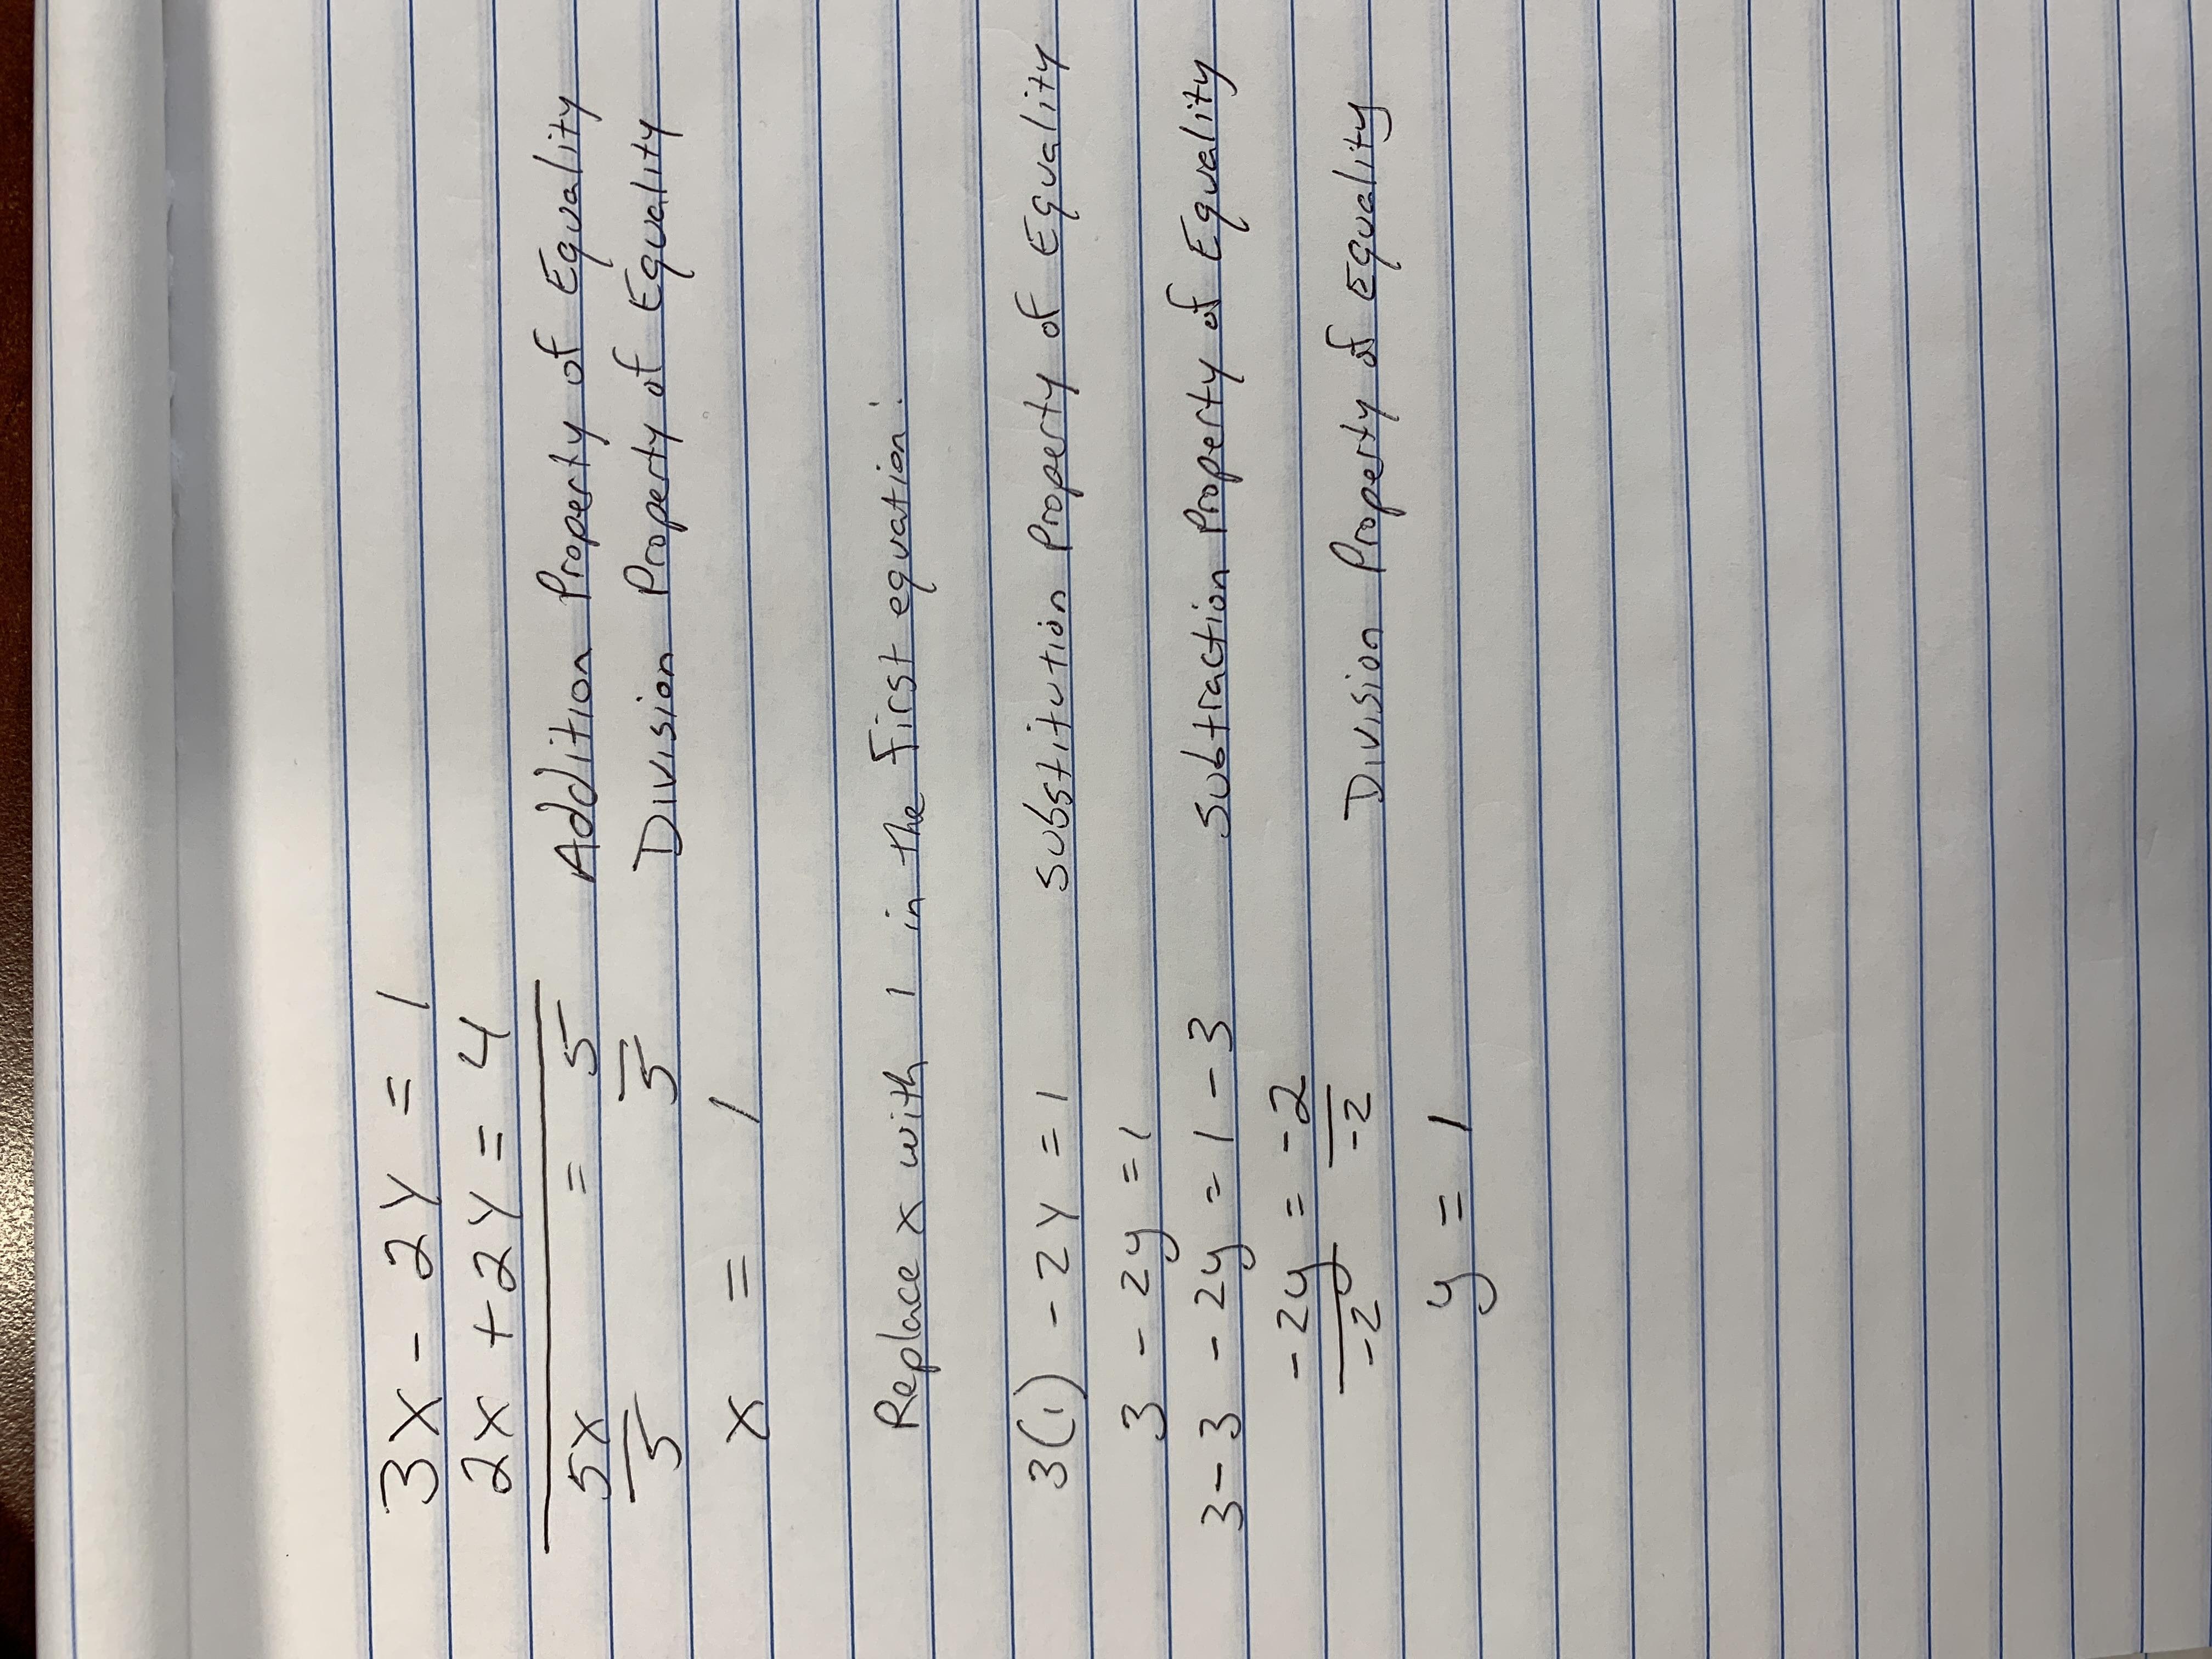 3x - 2y = 1
2x + 2y = 4
5x = 5 Addition Property of Equality
5 5 Division Property of Equality
x = 1
Replace x with 1 in the first equation:
3(1) - 2y = 1 Substitution Property of Equality
3 - 2y = 1
3 - 3 - 2y = 1 - 3 Subtraction Property of Equality
-2y = -2
-2 -2 Division Property of Equality
y = 1